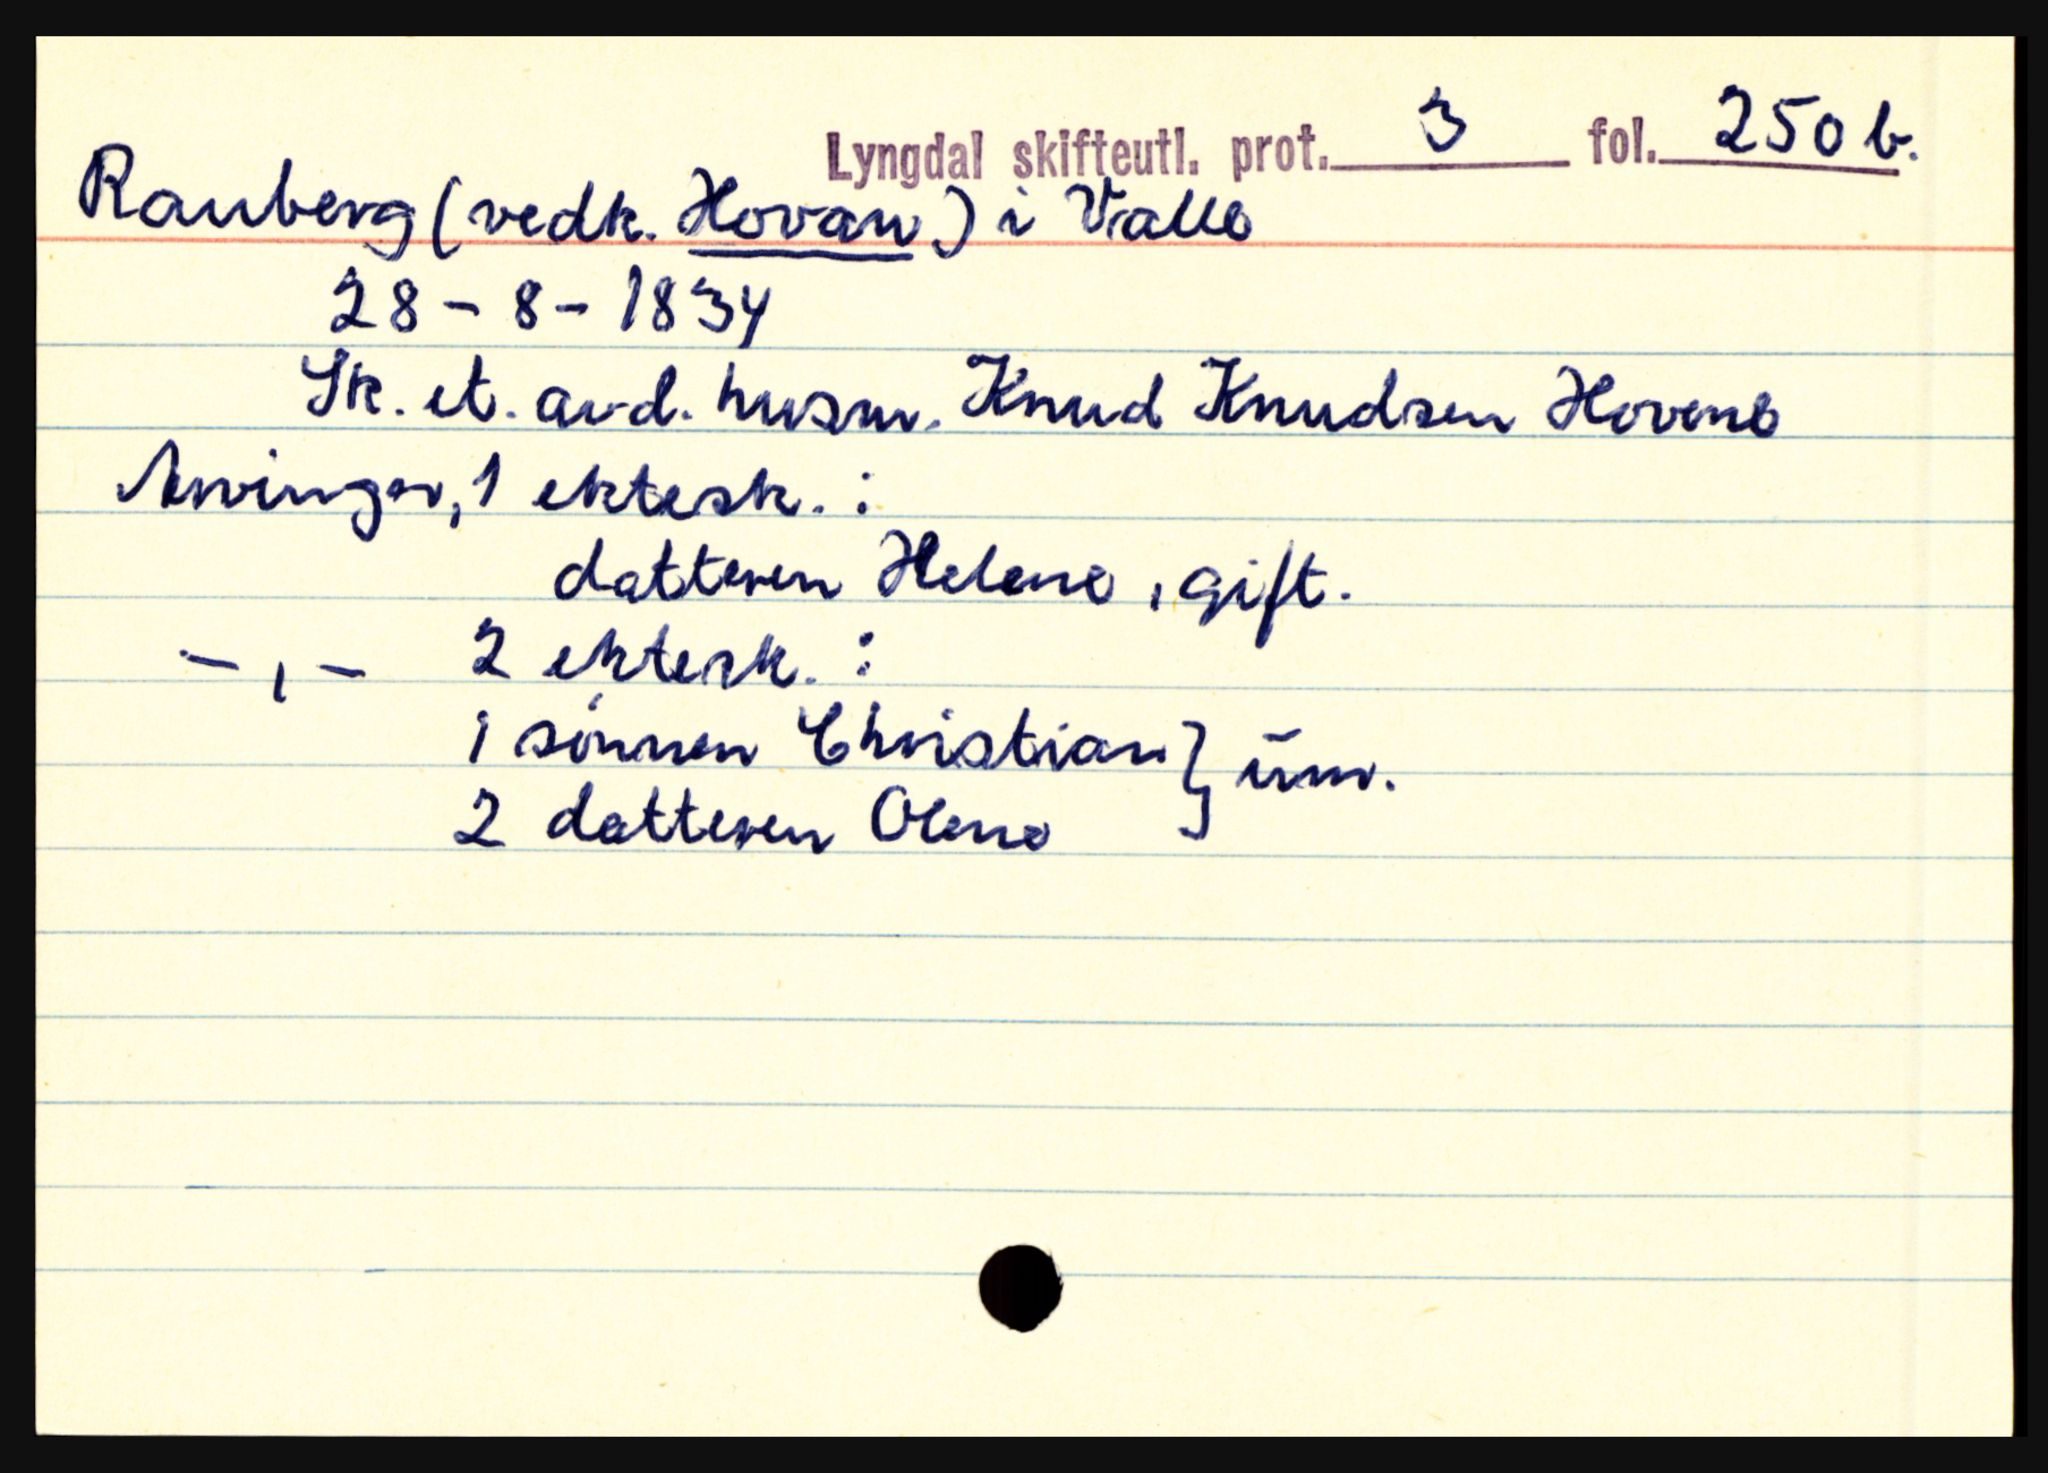 Lyngdal skifteutl. prot. 3 fol. 250 b.
Rauberg (vedk. Hovan) i Valle
28-8-1834
Sk. et. avd. husm. Knud Knudsen Hovene
Arvinger, 1 ektesk. :
datteren Helene, gift.
-,- 2 ektesk. :
1 sönnen Christian } üm.
2 datteren Olene